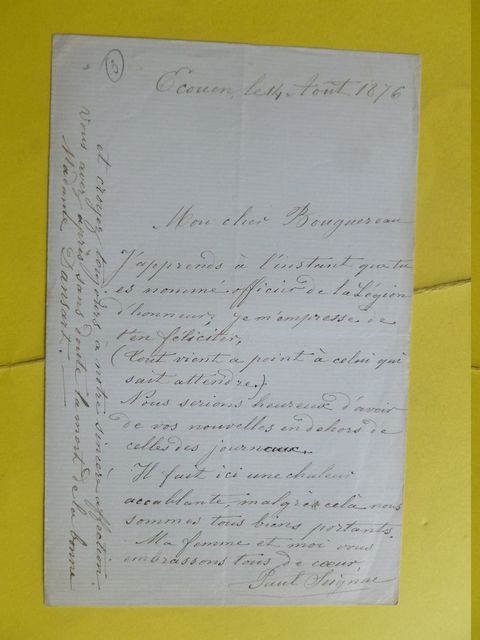 Ecouen, le 14 Août 1876
Mon cher Bouguereau
J'apprends à l'instant que tu
es nommé officier de la Légion
d'honneur, je m'empresse de
t'en féliciter,
(tout vient a point à celui qui
sait attendre.)
Nous serions heureux d'avoir
de vos nouvelles en dehors de
celles des journeaux.
Il fait ici une chaleur
accablante, malgré celà nous
sommes tous biens portants.
Ma femme et moi vous
embrassons tous de cœur.
Paul Seignac
et croyez toujours à notre sincère affection.
Vous avez appris sans doute la mort de la bonne
Madame Dansart.